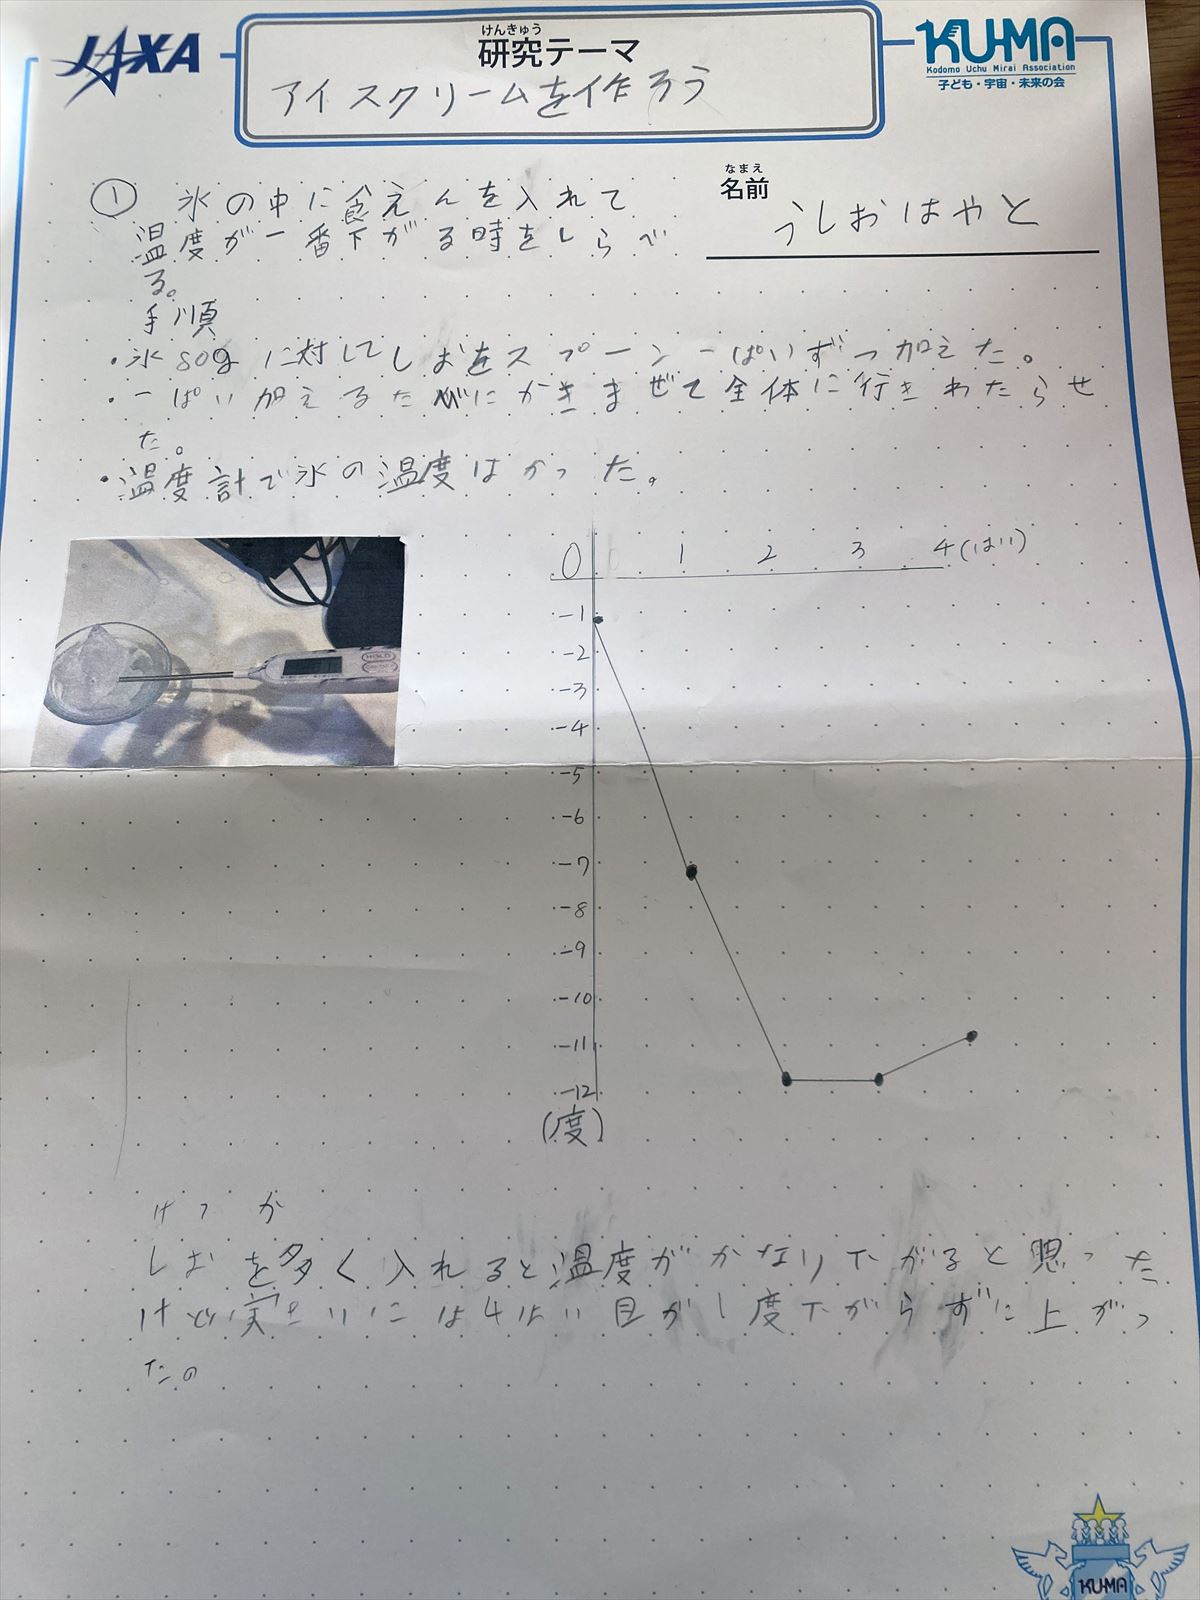 JAXA
けんきゅう
研究テーマ
アイスクリームを作ろう
KU-MA
Kodomo Uchu Mirai Association
子ども・宇宙・未来の会
なまえ
名前
うしおはやと
① 氷の中に食えんを入れて
温度が一番下がる時をしらべ
る。
手順
・氷80gに対してしおをスプーン一ぱいずつ加えた。
・一ぱい加えるたびにかきまぜて全体に行きわたらせ
た。
・温度計で氷の温度はかった。
0 1 2 3 4(はい)
-1
-2
-3
-4
-5
-6
-7
-8
-9
-10
-11
-12
(度)
けっか
しおを多く入れると温度がかなり下がると思った
けど実さいには4はい目が1度下がらずに上がっ
た。
KU-MA